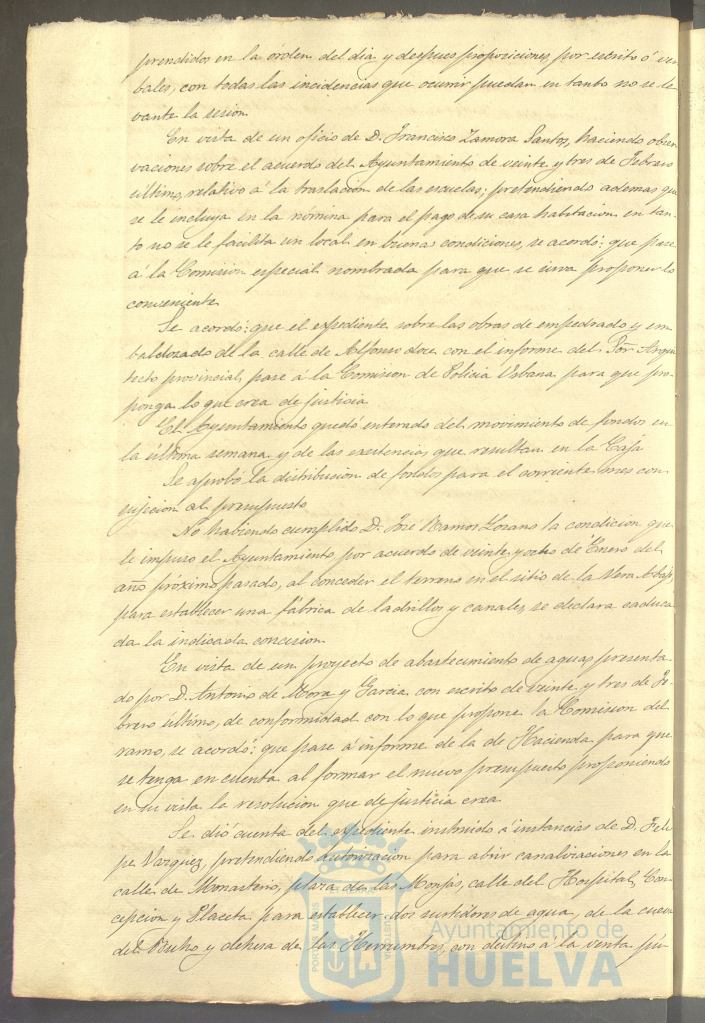 prendidos en la órden del dia y despues proposiciones por escrito ó ver
bales, con todas las incidencias que ocurrir puedan en tanto no se le
vante la sesion
En vista de un oficio de D. Francisco Zamora Santos, haciendo obser
vaciones sobre el acuerdo del Ayuntamiento de veinte y tres de Febrero
último, relativo á la traslacion de las escuelas; pretendiendo ademas que
se le incluya en la nómina para el pago de su casa habitacion en tan-
to no se le facilita un local en buenas condiciones, se acordó: que pase
á la Comision especial nombrada para que se sirva proponer lo
conveniente
Se acordó: que el expediente sobre las obras de empedrado y em
baldosado de la calle de Alfonso doce con el informe del Sor. Arqui
tecto provincial, pase á la Comision de Policia Urbana para que pro
ponga lo que crea de justicia
El Ayuntamiento quedó enterado del movimiento de fondos en
la última semana y de las existencias que resultan en la Caja
Se aprobó la distribucion de fondos para el corriente mes con
sujecion al presupuesto
No habiendo cumplido D. José Ramos Lozano la condicion que
le impuso el Ayuntamiento por acuerdo de veinte y ocho de Enero del
año próximo pasado, al conceder el terreno en el sitio de la Vera Abajo,
para establecer una fábrica de ladrillos y canales, se declara caduca
da la indicada concesion
En vista de un proyecto de abastecimiento de aguas presenta
do por D. Antonio de Mora y Garcia, con escrito de veinte y tres de Fe-
brero último, de conformidad con lo que propone la Comision del
ramo, se acordó: que pase á informe de la de Hacienda para que
se tenga en cuenta al formar el nuevo presupuesto proponiendo
en su vista la resolucion que de justicia crea
Se dió cuenta del expediente instruido á instancias de D. Feli
pe Vazquez, pretendiendo autorizacion para abrir canalizaciones en la
calle de Monasterio, plaza de las Monjas, calle del Hospital, Con
cepcion y Placeta para establecer dos surtidores de agua, de la cueva
del Buho y dehesa de las Herrumbres, con destino á la venta pú-
Ayuntamiento de
HUELVA